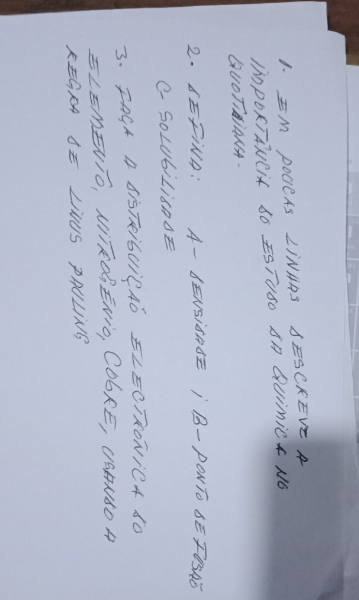 1. EM POUCAS LINHAS DESCREVE A
IMPORTÂNCIA DO ESTUDO DA QUIMICA NO
QUOTIDIANA.
2. DEFINA: A- DENSIDADE ; B- PONTO DE FUSÃO
C- SOLUBILIDADE
3. FAÇA A DISTRIBUIÇÃO ELECTRÔNICA DO
ELEMENTO, NITROGÊNIO, COBRE, USANDO A
REGRA DE LINUS PAULING